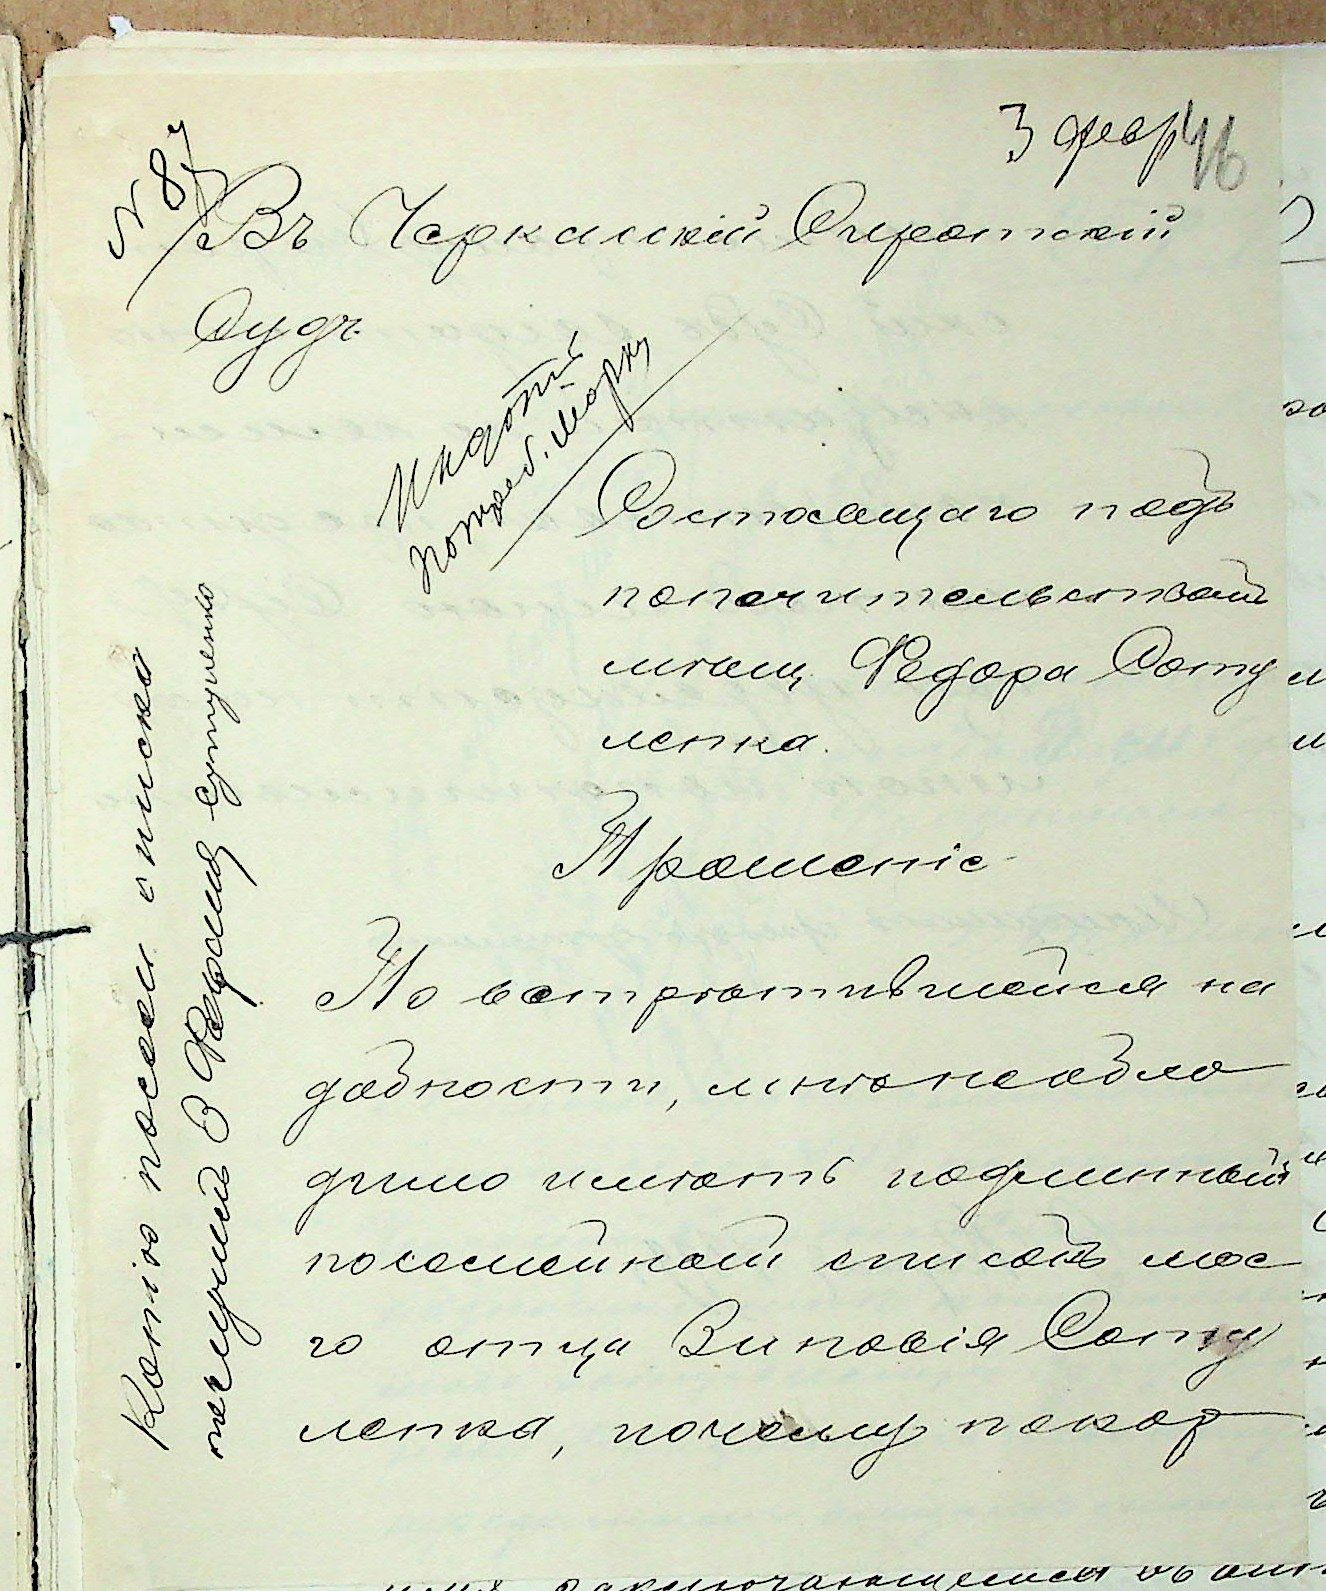 3 февр
46
N 87
Въ Черкасскій Сиротскій
Судъ
Выдать
Состоящаго подъ
попечительствомъ
мѣщ. Федора Сату
ленка.
Прошеніе
По встрѣтившейся на
добности, мнѣ необхо
димо имѣть подлинный
посемейный списокъ мое
го отца Зиновія Сату
ленка, почему покор
Копію посем списка
получилъ Ѳедоръ Сатуленко